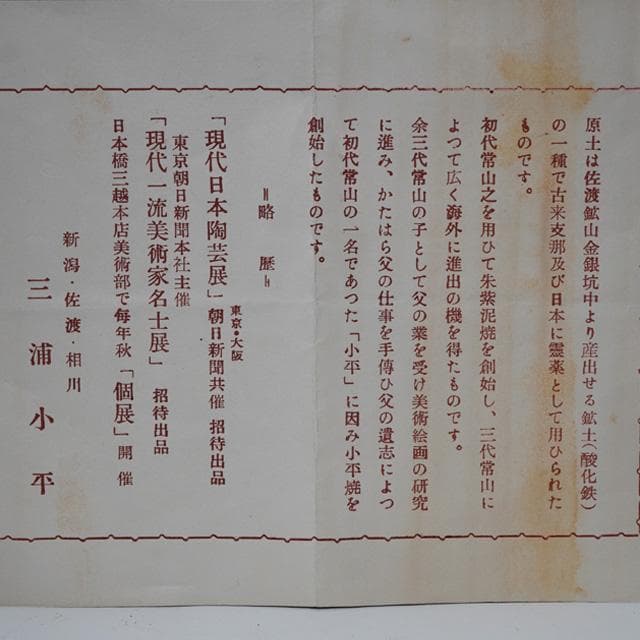 原土は佐渡鉱山金銀坑中より産出せる鉱土(酸化鉄)
の一種で古来支那及び日本に靈薬として用ひられた
ものです。
初代常山之を用ひて朱紫泥焼を創始し、三代常山に
よつて広く海外に進出の機を得たものです。
余三代常山の子として父の業を受け美術絵画の研究
に進み、かたはら父の仕事を手傳ひ父の遺志によつ
て初代常山の一名であつた「小平」に因み小平焼を
創始したものです。
=略歴=
「現代日本陶芸展」東京・大阪朝日新聞共催 招待出品
東京朝日新聞本社主催
「現代一流美術家名士展」 招待出品
日本橋三越本店美術部で毎年秋「個展」開催
新潟・佐渡・相川
三浦小平